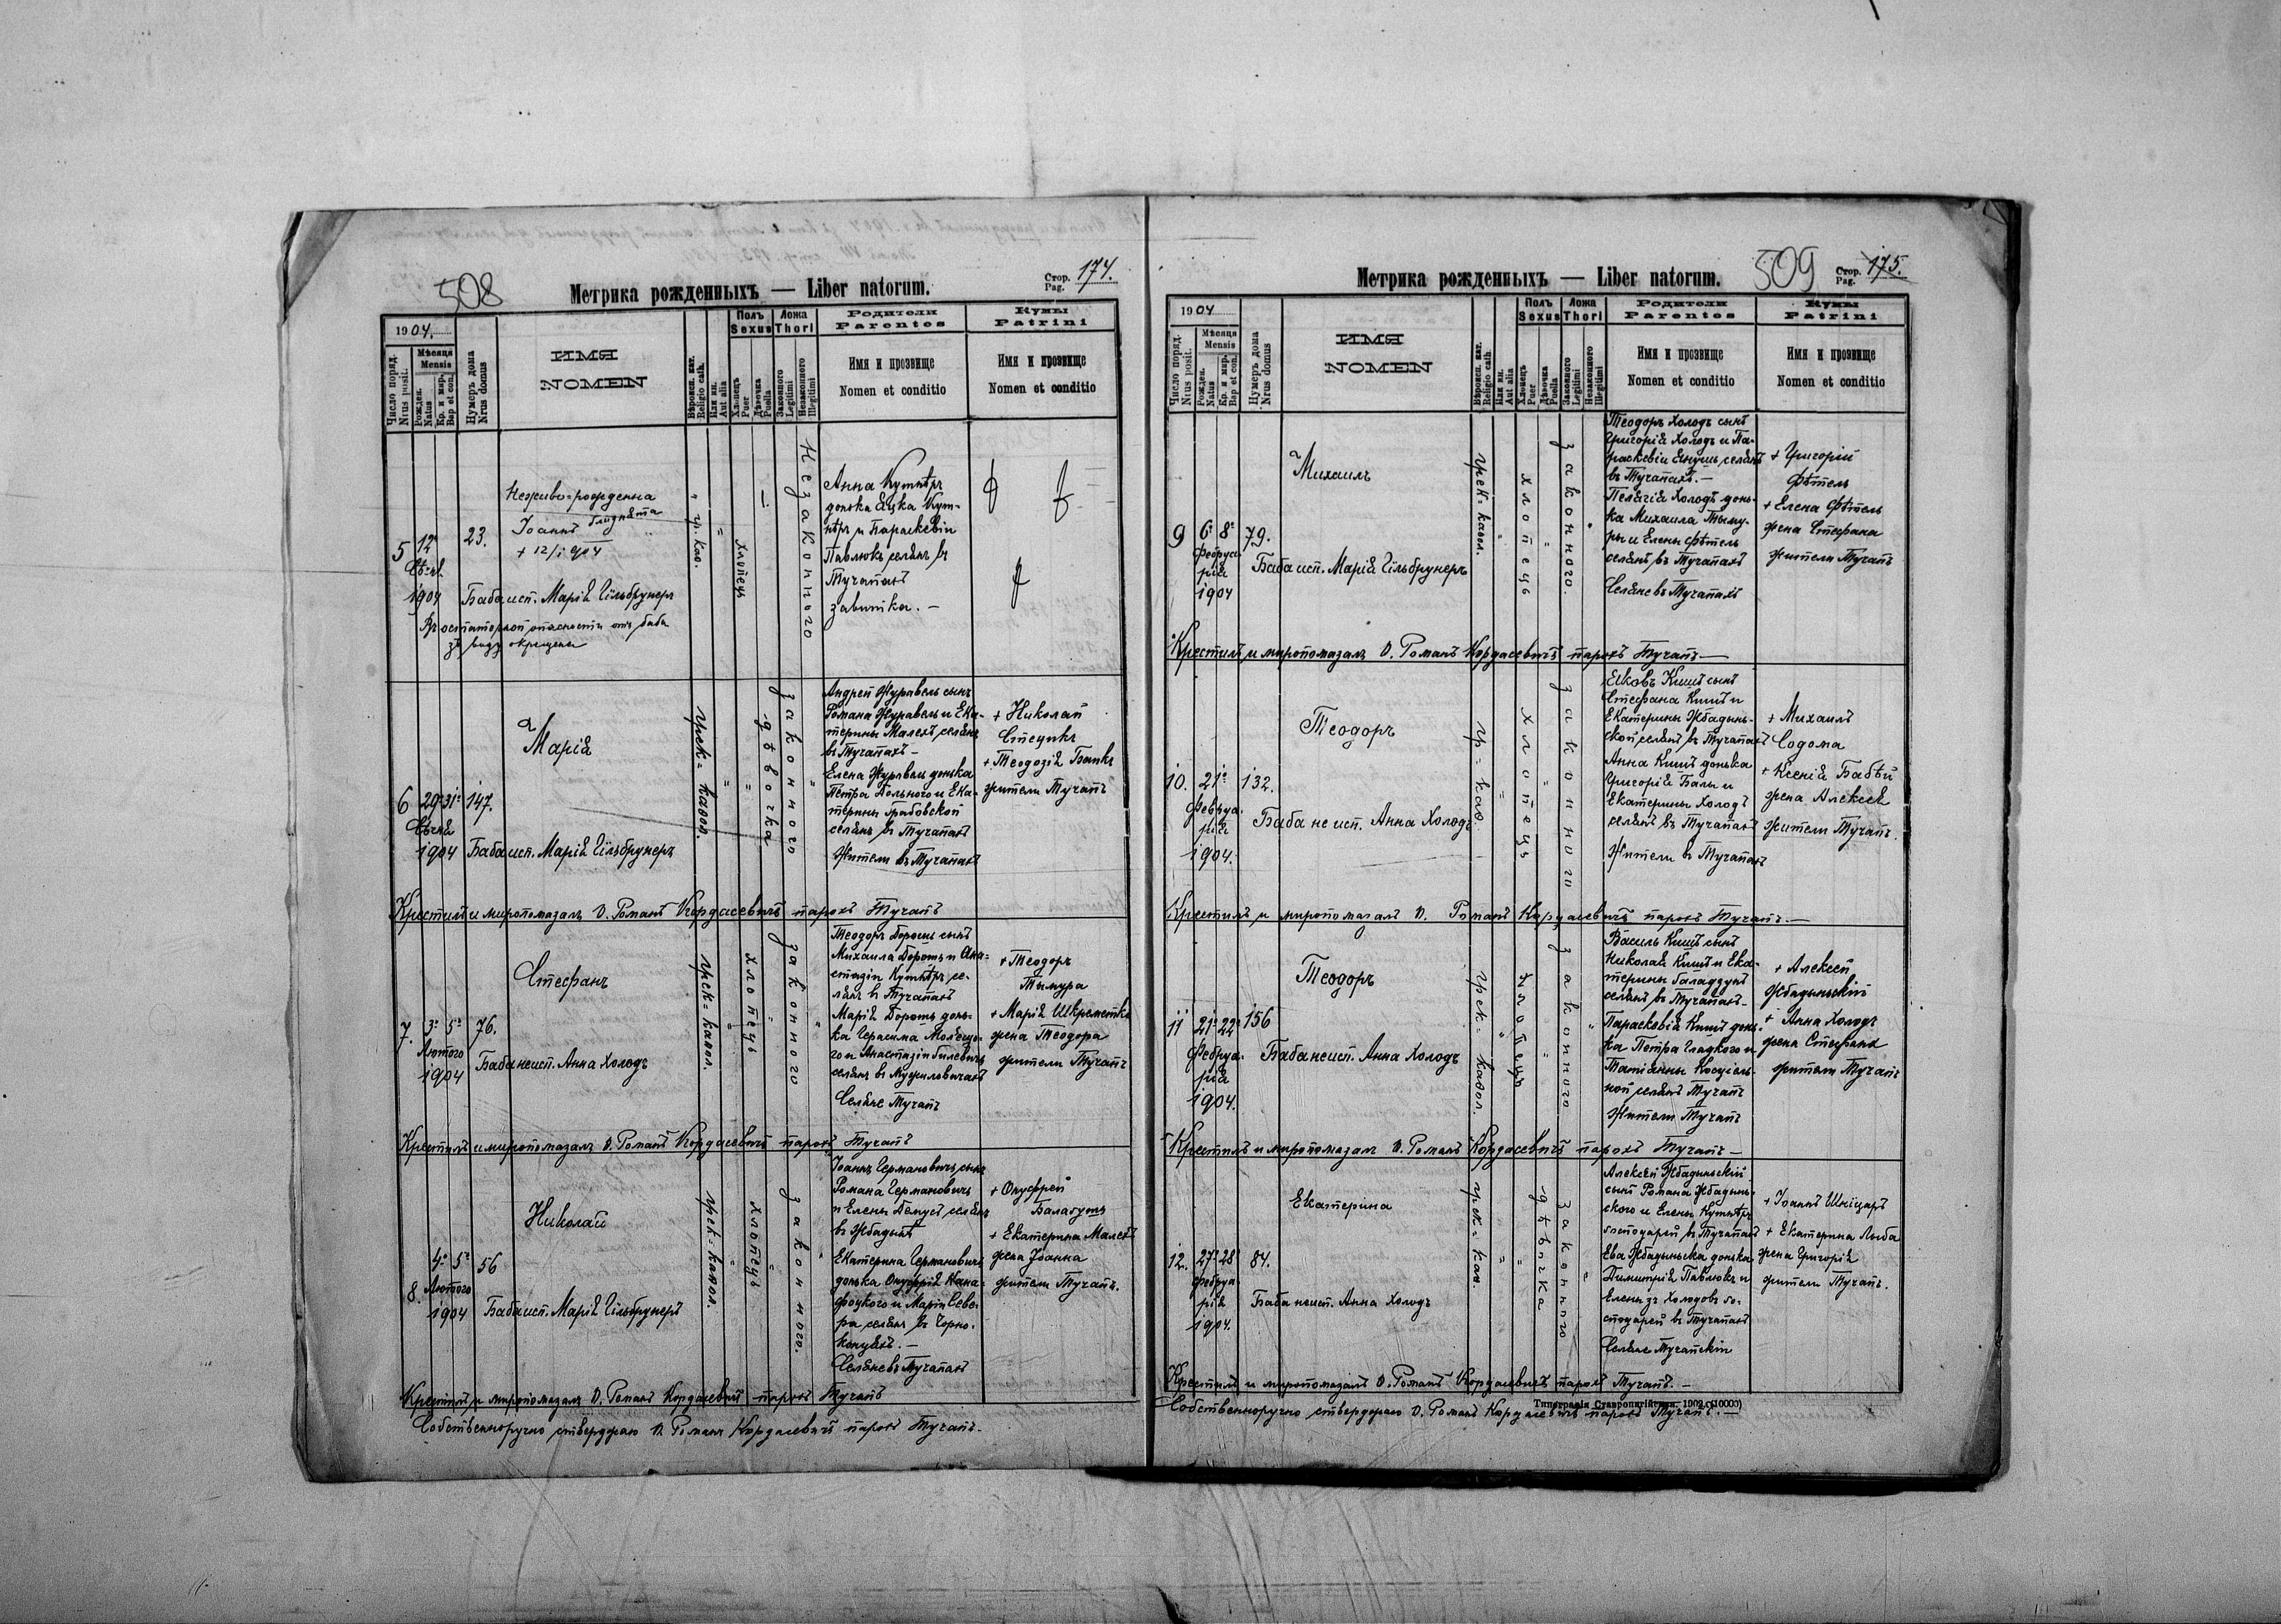 508
Метрика рожденныхъ — Liber natorum.
Стор. 174.
Pag.
1904.
Число поряд.
Nrus posit.
Мѣсяця
Mensis
Рожден.
Natus
Кр. и мир.
Bap et con.
Нумеръ дома
Nrus domus
ИМЯ
NOMEN
Вѣроисп. кат.
Religio cath.
Или ин.
Aut alia
Полъ
Sexus
Хлопець
Puer
Дѣвочка
Puella
Ложа
Thori
Законного
Legitimi
Незаконного
Illegitimi
Родители
Parentes
Имя и прозвище
Nomen et conditio
Кумы
Patrini
Имя и прозвище
Nomen et conditio
5
12
1904
23.
Неживо-рожденна
Іоаннъ близнята
+ 12/I 904
Баба исп. Марія Гільбрунеръ
опасности отъ бабы
гр. каѳ.
хлопець
Незаконного
Анна Кутнѣръ
донька Яцка Кут-
нѣръ и Параскевіи
Павлюкъ селянъ въ
Тучапахъ
завитка. —
6
29 31
1904
147.
Марія
Баба исп. Марія Гільбрунеръ
грек= каѳол.
дѣвочка
законного
Андрей Журавель сынъ
Романа Журавель и Ека-
терины Малехъ, селянъ
въ Тучапахъ —
Елена Журавель донька
Петра Дольного и Ека-
терины Грабовской
селянъ въ Тучапахъ
Жители въ Тучапахъ
+ Николай
Стецикъ
+ Теодозія Банкъ
жители Тучапъ
Крестилъ и миропомазалъ О. Романъ Кордасевичъ парохъ Тучапъ
7.
3 5
Лютого
1904
76.
Стефанъ
Баба неисп. Анна Холодъ
грек= каѳол.
хлопець
законного
Теодоръ Дорошъ сынъ
Михаила Дорошъ и Ана-
стазіи Кутнѣръ, се-
лянъ въ Тучапахъ
Марія Дорошъ донь-
ка Герасима
го и Анастазіи Гилевичъ
селянъ въ Мужиловичахъ
Селяне Тучапъ
+ Теодоръ
Тымура
+ Марія Шкрометка
жена Теодора
жители Тучапъ
Крестилъ и миропомазалъ О. Романъ Кордасевичъ парохъ Тучапъ
8.
4 5
Лютого
1904
56
Николай
Баба исп. Марія Гільбрунеръ
грек= каѳол.
хлопець
законного.
Іоаннъ Германовичъ, сынъ
Романа Германовичъ
и Елены Демусъ, селянъ
въ Жбадыняхъ
Екатерина Германовичъ
донька Онуфрія Кана-
фоцкого и Маріи Севе-
ра селянъ въ Чорно-
концяхъ. —
Селяне въ Тучапахъ
+ Онуфрей
Балагутъ
+ Екатерина Малехъ
жена Іоанна
жители Тучапъ.
Крестилъ и миропомазалъ О. Романъ Кордасевичъ парохъ Тучапъ
Собственноручно ствердждаю О. Романъ Кордасевичъ парохъ Тучапъ.
Метрика рожденныхъ — Liber natorum.
509
Стор. 175.
Pag.
1904
Число поряд.
Nrus posit.
Мѣсяця
Mensis
Рожден.
Natus
Кр. и мир.
Bap et con.
Нумеръ дома
Nrus domus
ИМЯ
NOMEN
Вѣроисп. кат.
Religio cath.
Или ин.
Aut alia
Полъ
Sexus
Хлопець
Puer
Дѣвочка
Puella
Ложа
Thori
Законного
Legitimi
Незаконного
Illegitimi
Родители
Parentes
Имя и прозвище
Nomen et conditio
Кумы
Patrini
Имя и прозвище
Nomen et conditio
9
6 8
Фебруа-
рія
1904
79.
Михаилъ
Баба исп. Марія Гільбрунеръ
грек= каѳол.
хлопець
законного.
Теодоръ Холодъ сынъ
Григорія Холодъ и Па-
раскевіи Янушъ, селянъ
въ Тучапахъ. —
Пелагія Холодъ донь-
ка Михаила Тыму-
ры и Елены Фѣтель
селянъ въ Тучапахъ
Селяне въ Тучапахъ
+ Григорій
Фѣтель
+ Елена Фѣтель
жена Стефана
жители Тучапъ
Крестилъ и миропомазалъ О. Романъ Кордасевичъ парохъ Тучапъ —
10.
21
Фебруа-
рія
1904.
132.
Теодоръ
Баба не исп. Анна Холодъ
гр= каѳ.
хлопець
законного
Яковъ Кишъ сынъ
Стефана Кишъ и
Екатерины Жбадынь-
ской селянъ въ Тучапахъ
Анна Кишъ донька
Григорія Балы и
Екатерины Холодъ
селянъ въ Тучапахъ
Жители въ Тучапахъ
+ Михаилъ
Содома
+ Ксенія Бабѣй
жена Алексея
жители Тучапъ.
Крестилъ и миропомазалъ О. Романъ Кордасевичъ парохъ Тучапъ. —
11
21 22
Фебруа-
рія
1904.
156
Теодоръ
Баба неисп. Анна Холодъ
грек= каѳол.
хлопець
законного
Василь Кишъ сынъ
Николая Кишъ и Ека-
терины Галадзунъ
селянъ въ Тучапахъ —
Парасковія Кишъ донь-
ка Петра Гладкого и
Татіанны
ной селянъ Тучапъ
Жители Тучапъ
+ Алексей
Жбадыньскій
+ Анна Холодъ
жена Стефана
жители Тучапъ
Крестилъ и миропомазалъ О. Романъ Кордасевичъ парохъ Тучапъ —
12.
27 28
Фебруа-
рія
1904.
84.
Екатерина
Баба неисп. Анна Холодъ
грек= каѳ.
дѣвочка
законного
Алексей Жбадыньскій
сынъ Романа Жбадынь-
ского и Елены Кутнѣръ
господарей въ Тучапахъ
Ева Жбадыньска донька
Димитрія Павлюкъ и
Елены зъ Холодовъ го-
сподарей въ Тучапахъ
Селяне Тучапскіи
+ Іоаннъ Шніцаръ
+ Екатерина Лыба
жена Григорія
жители Тучапъ.
Крестилъ и миропомазалъ О. Романъ Кордасевичъ парохъ Тучапъ. —
Собственноручно ствердждаю О. Романъ Кордасевичъ парохъ Тучапъ. —